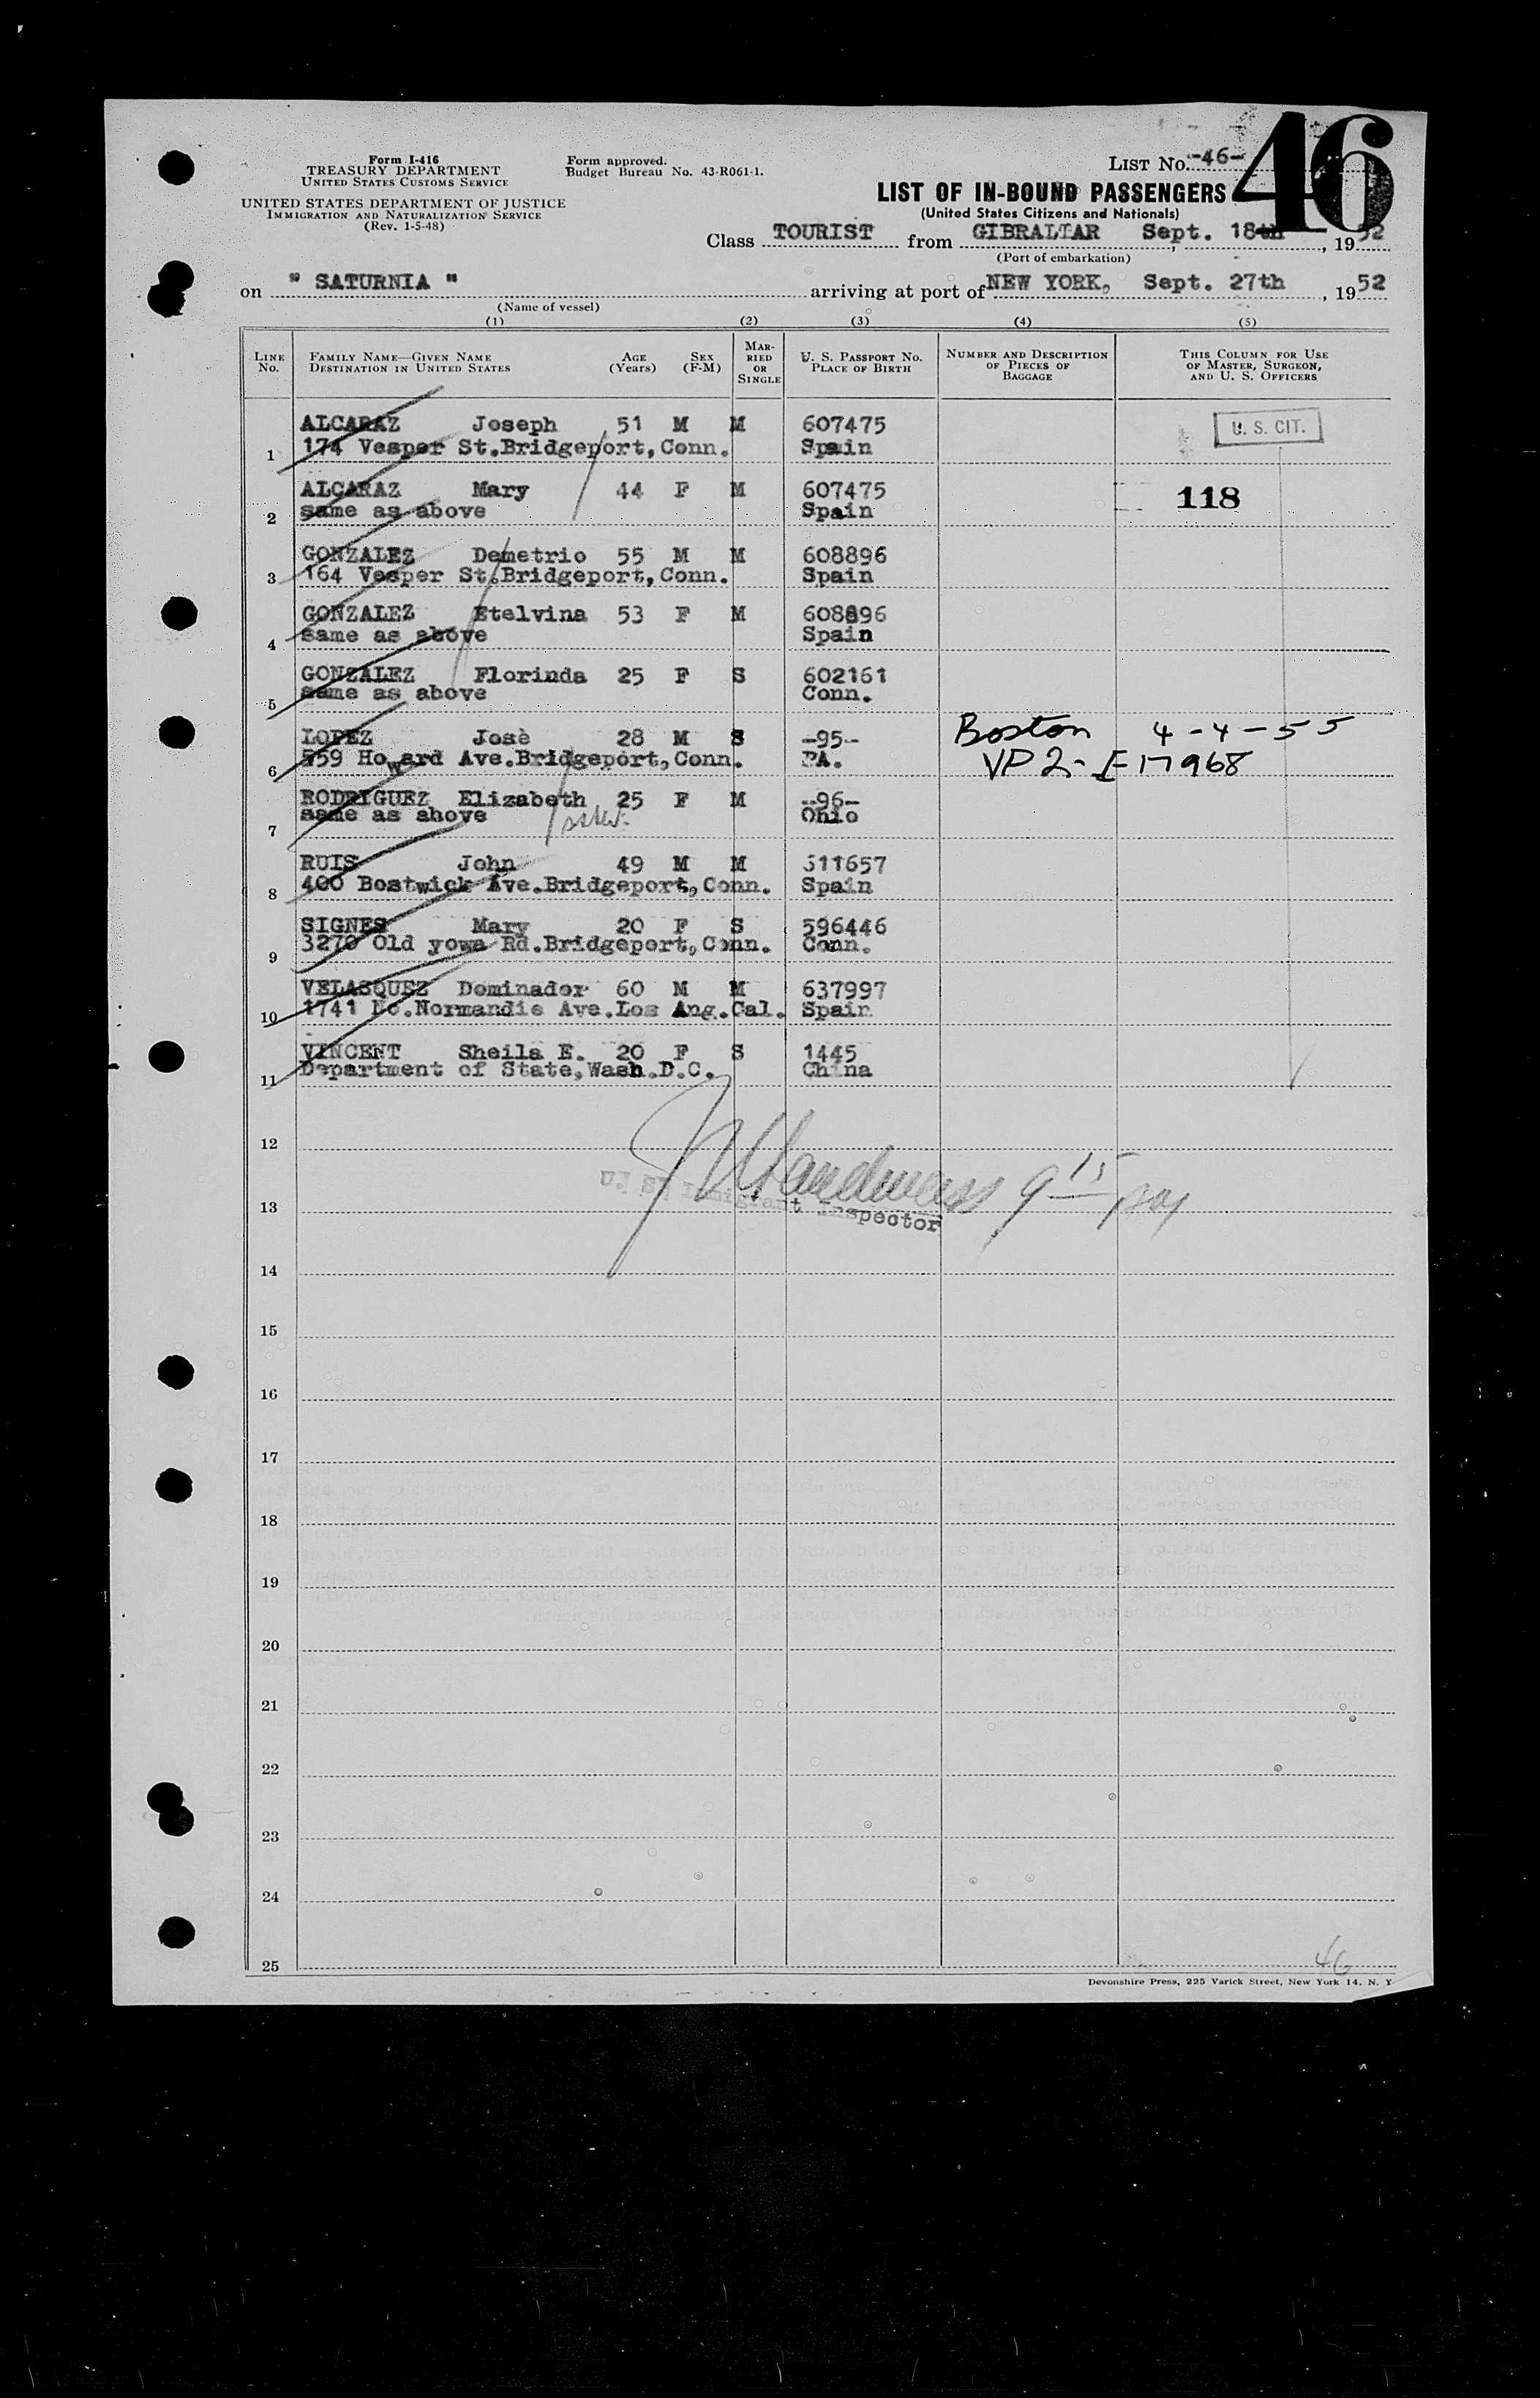 Form I-416
TREASURY DEPARTMENT
UNITED STATES CUSTOMS SERVICE
UNITED STATES DEPARTMENT OF JUSTICE
IMMIGRATION AND NATURALIZATION SERVICE
(Rev. 1-5-48)
Form approved.
Budget Bureau No. 43-R061-1.
LIST No. -46-
46
LIST OF IN-BOUND PASSENGERS
(United States Citizens and Nationals)
Class TOURIST from GIBRALTAR Sept. 18th, 1952
(Port of embarkation)
on " SATURNIA " arriving at port of NEW YORK, Sept. 27th, 1952
(Name of vessel)
(1) (2) (3) (4) (5)
LINE No. FAMILY NAME—GIVEN NAME DESTINATION IN UNITED STATES AGE (Years) SEX (F-M) MARRIED OR SINGLE U. S. PASSPORT NO. PLACE OF BIRTH NUMBER AND DESCRIPTION OF PIECES OF BAGGAGE THIS COLUMN FOR USE OF MASTER, SURGEON, AND U. S. OFFICERS
ALCARAZ Joseph 51 M M 607475 U. S. CIT.
1 174 Vesper St.Bridgeport,Conn. Spain
ALCARAZ Mary 44 F M 607475 118
2 same as above Spain
GONZALEZ Demetrio 55 M M 608896
3 164 Vesper St.Bridgeport,Conn. Spain
GONZALEZ Etelvina 53 F M 608896
4 same as above Spain
GONZALEZ Florinda 25 F S 602161
5 same as above Conn.
LOPEZ Josè 28 M S -95- Boston 4-4-55
6 559 Howard Ave.Bridgeport,Conn. PA. VP2-E17968
RODRIGUEZ Elizabeth 25 F M -96-
7 same as above Ohio
RUIS John 49 M M 611657
8 400 Bostwick Ave.Bridgeport,Conn. Spain
SIGNES Mary 20 F S 596446
9 3270 Old yowa Rd.Bridgeport,Conn. Conn.
VELASQUEZ Dominador 60 M M 637997
10 1741 No.Normandie Ave.Los Ang.Cal. Spain
VINCENT Sheila E. 20 F S 1445
11 Department of State,Wash.D.C. China
12
U. S. Immigrant Inspector
13
14
15
16
17
18
19
20
21
22
23
24
46
25
Devonshire Press, 225 Varick Street, New York 14, N. Y